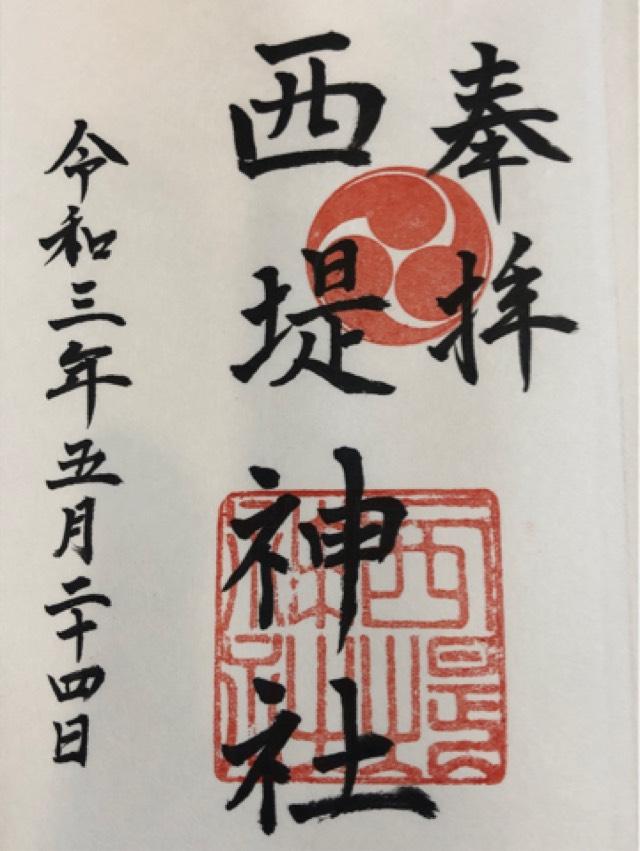 奉拝
西堤神社
令和三年五月二十四日
西堤神社